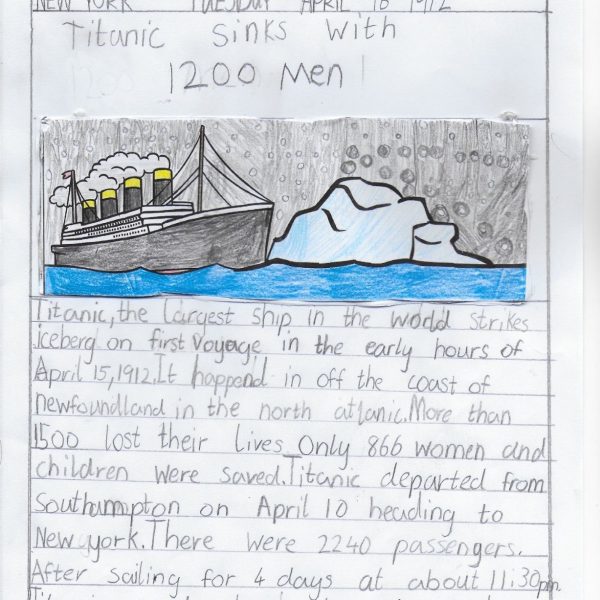 NEW YORK TUESDAY APRIL 16 1912
Titanic Sinks With
1200 Men
Titanic, the largest ship in the world strikes
iceberg on first voyage in the early hours of
April 15,1912.It happend in off the coast of
newfoundland in the north atlanic.More than
1500 lost their lives Only 866 women and
children were saved.Titanic departed from
Southampton on April 10 heading to
New york.There were 2240 passengers.
After sailing for 4 days at about 11:30pm.